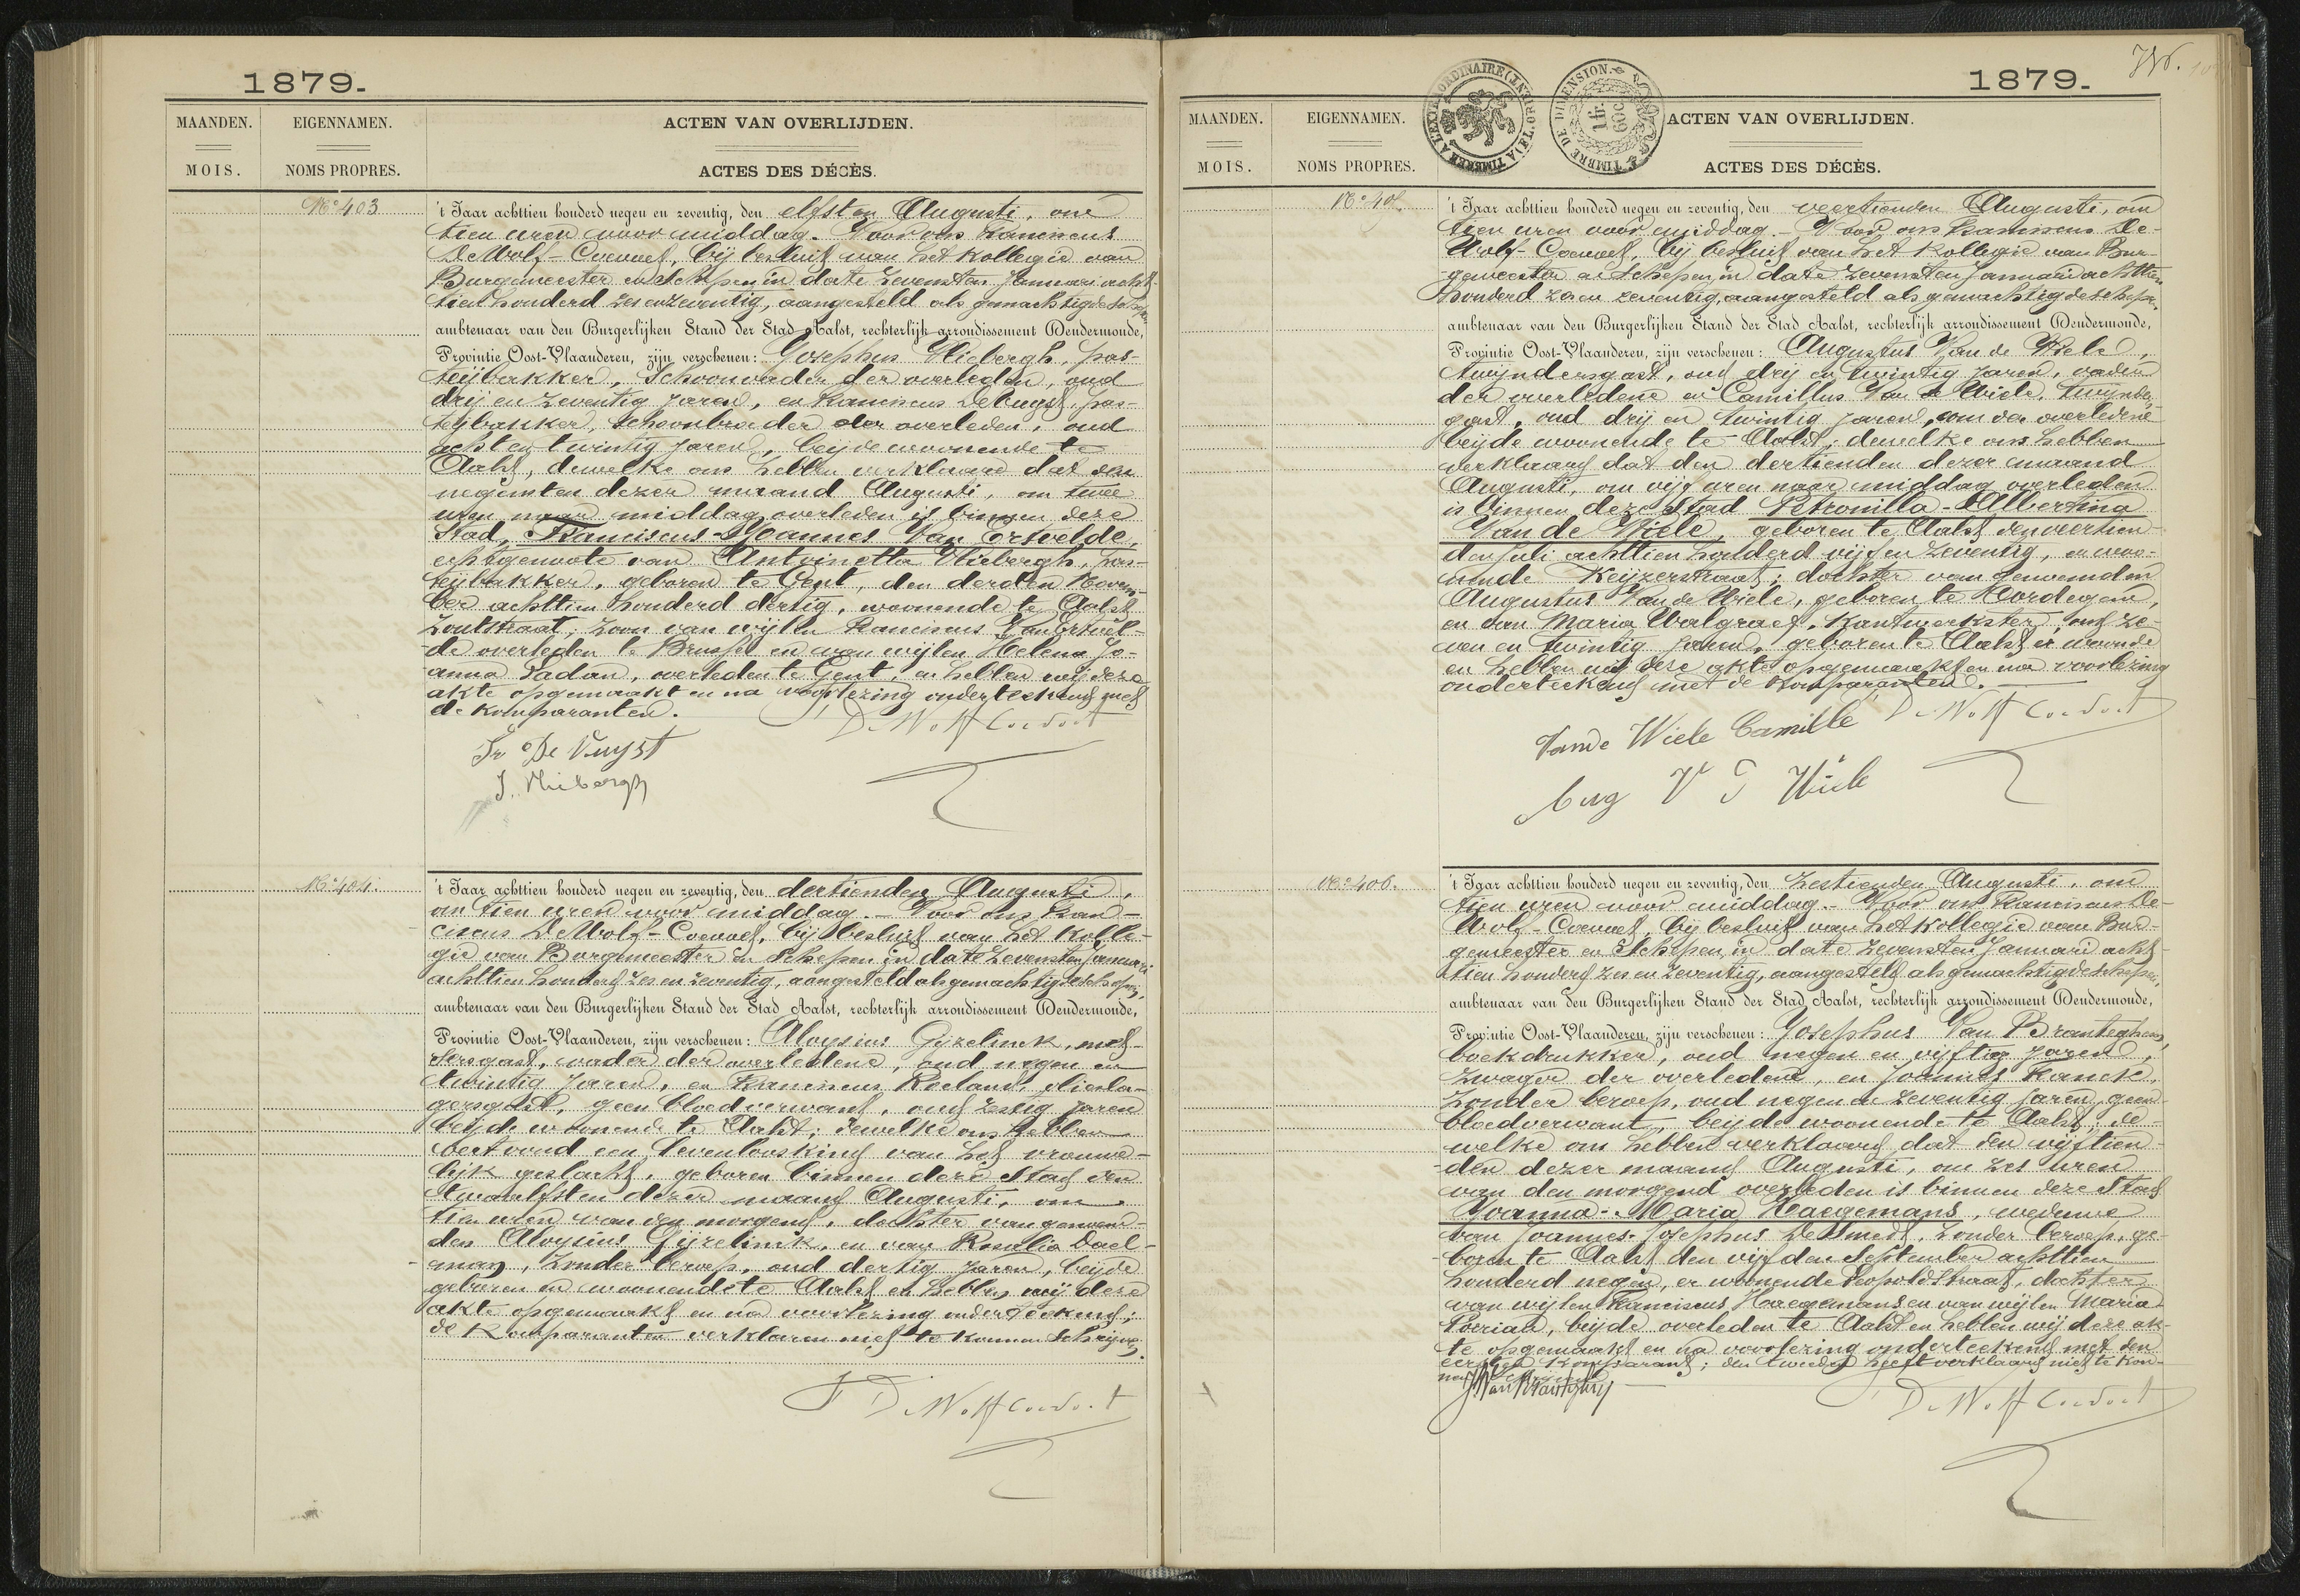 1879.
MAANDEN.
EIGENNAMEN.
ACTEN VAN OVERLIJDEN.
MOIS.
NOMS PROPRES.
ACTES DES DÉCÈS.
No. 403
't Jaar achttien honderd negen en zeventig, den elfsten Augusti, om
tien uren voor middag. Voor ons Franciscus
De Wolf-Coevoet, bij besluit van het Kollegie van
Burgemeester en Schepen in date zevensten Januari acht-
tien honderd zes en zeventig, aangesteld als gemachtigde Schepen,
ambtenaar van den Burgerlijken Stand der Stad Aalst, rechterlijk arrondissement Dendermonde,
Provintie Oost-Vlaanderen, zijn verschenen: Josephus Vliebergh, pas-
teijbakker, Schoonvader der overleden, oud
drij en zeventig jaren, en Franciscus De Vuyst, pas-
teijbakker, Schoonbroeder der overleden, oud
acht en twintig jaren, beijde woonende te
Aalst, dewelke ons hebben verklaard dat den
negensten dezer maand Augusti, om twee
uren naar middag overleden is binnen deze
Stad, Franciscus-Joannes Van Ertvelde,
echtgenoote van Antoinetta Vliebergh, pas-
teijbakker, geboren te Gent, den derden Novem-
ber achttien honderd dertig, woonende te Aalst
Zoutstraat; zoon van wijlen Franciscus Van Ertvel-
de overleden te Brussel en van wijlen Helena Jo-
anna Ladan, overleden te Gent, en hebben wij deze
akte opgemaakt en na voorlezing onderteekend met
de komparanten.
F De Wolf Coevoet
Fr De Vuyst
J. Vliebergh
No. 404.
't Jaar achttien honderd negen en zeventig, den dertienden Augusti,
om tien uren voor middag. - Voor ons Fran-
ciscus De Wolf-Coevoet, bij besluit van het Kolle-
gie van Burgemeester en Schepen in date zevensten Januari
achttien honderd zes en zeventig, aangesteld als gemachtigde schepen,
ambtenaar van den Burgerlijken Stand der Stad Aalst, rechterlijk arrondissement Dendermonde,
Provintie Oost-Vlaanderen, zijn verschenen: Aloysius Gijzelinck, met-
sersgast, vader der overledene, oud negen en
twintig jaren, en Franciscus Roeland,
geen bloedverwant, oud zestig jaren
beijde woonende te Aalst; dewelke ons hebben
vertoond een levenloos kind van het vrouwe-
lijk geslacht, geboren binnen deze Stad den
twaalfsten dezer maand Augusti, om
tien uren van den morgend, dochter van genoem-
den Aloysius Gijzelinck, en van Rosalia Dael-
eman, zonder beroep, oud dertig jaren, beijde
geboren en woonende te Aalst en hebben wij deze
akte opgemaakt en na voorlezing onderteekend;
de Komparanten verklaren niet te konnen schrijven.
F De Wolf Coevoet
1879.
MAANDEN.
EIGENNAMEN.
ACTEN VAN OVERLIJDEN.
MOIS.
NOMS PROPRES.
ACTES DES DÉCÈS.
TIMBRE DE DIMENSION.
1 fr. 60c
No. 405.
't Jaar achttien honderd negen en zeventig, den veertienden Augusti, om
tien uren voor middag. - Voor ons Franciscus De-
Wolf-Coevoet, bij besluit van het Kollegie van Bur-
gemeester en Schepen in date zevensten Januari achttien
honderd zes en zeventig, aangesteld als gemachtigde schepen,
ambtenaar van den Burgerlijken Stand der Stad Aalst, rechterlijk arrondissement Dendermonde,
Provintie Oost-Vlaanderen, zijn verschenen: Augustus Van de Wiele,
twijndersgast, oud drij en twintig jaren, vader
der overledene en Camillus Van de Wiele, twijnders
gast, oud drij en twintig jaren, oom der overledene
beijde woonende te Aalst; dewelke ons hebben
verklaard dat den dertienden dezer maand
Augusti, om vijf uren naar middag overleden
is binnen deze Stad Petronilla-Albertina
Van de Wiele, geboren te Aalst den veertien-
den Juli achttien honderd vijf en zeventig, en woo-
nende Keijzerstraat; dochter van genoemden
Augustus Van de Wiele, geboren te Hordegem,
en van Maria Walgraef, Kantwerkster, oud ze-
ven en twintig jaren, geboren te Aalst er woonende
en hebben wij deze akte opgemaakt en na voorlezing
onderteekend met de Komparanten.
F De Wolf Coevoet
Vande Wiele Camille
Aug V D Wiele
No. 406.
't Jaar achttien honderd negen en zeventig, den zestienden Augusti, om
tien uren voor middag. - Voor ons Franciscus De-
Wolf-Coevoet, bij besluit van het Kollegie van Bur-
gemeester en Schepen in date zevensten Januari acht-
tien honderd zes en zeventig, aangesteld als gemachtigde schepen,
ambtenaar van den Burgerlijken Stand der Stad Aalst, rechterlijk arrondissement Dendermonde,
Provintie Oost-Vlaanderen, zijn verschenen: Josephus Van Branteghem,
boekdrukker, oud negen en vijftig jaren,
zwager der overledene, en Joannes Franck,
zonder beroep, oud negen en zeventig jaren, geen
bloedverwant, beijde woonende te Aalst; de-
welke ons hebben verklaard dat den vijftien-
den dezer maand Augusti, om zes uren
van den morgend overleden is binnen deze Stad
Joanna-Maria Haegemans, weduwe
van Joannes-Josephus De Smedt, zonder beroep, ge-
boren te Aalst den vijfden September achttien
honderd negen, er woonende Leopoldstraat, dochter
van wijlen Franciscus Haegemans en van wijlen Maria
beijde overleden te Aalst en hebben wij deze ak-
te opgemaakt en na voorlezing onderteekend met den
eersten Komparant; den tweeden heeft verklaard niet te kon-
nen schrijven
J Van Branteghem
F De Wolf Coevoet